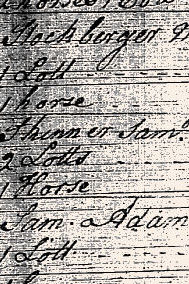 Stockberger
1 Lott
1 horse
Skinner Saml
2 Lotts
1 Horse
Sam. Adam
1 Lott